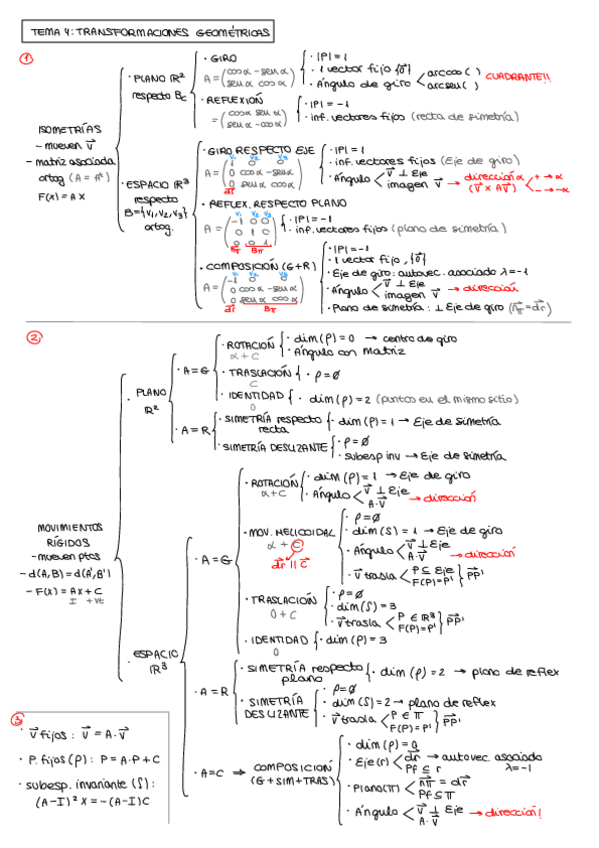 TEMA 4: TRANSFORMACIONES GEOMÉTRICAS
①
ISOMETRÍAS
- mueven v⃗
- matriz asociada
ortog (A = Aᵗ)
F(x) = A x
· PLANO ℝ²
respecto Bc
· GIRO
A = (cosα -senα
senα cosα)
· |P| = 1
· 1 vector fijo {0⃗}
· Ángulo de giro < arccos( )
arcsen( )
CUADRANTE!!
· REFLEXIÓN
= (cosα senα
senα -cosα)
· |P| = -1
· inf. vectores fijos (recta de simetría)
· ESPACIO ℝ³
respecto
B={v₁,v₂,v₃}
ortog.
· GIRO RESPECTO EJE
v₁ v₂ v₃
A = (1 0 0
0 cosα -senα
0 senα cosα)
dr⃗
· |P| = 1
· inf. vectores fijos (Eje de giro)
· Ángulo < v⃗ ⊥ Eje
imagen v⃗
→ dirección α < + → α
- → -α
(v⃗ × Av⃗)
· REFLEX. RESPECTO PLANO
v₁ v₂ v₃
A = (-1 0 0
0 1 0
0 0 1)
Bπ
· |P| = -1
· inf. vectores fijos (plano de simetría)
· COMPOSICIÓN (G+R)
v₁ v₂ v₃
A = (-1 0 0
0 cosα -senα
0 senα cosα)
dr⃗ Bπ
· |P| = -1
· 1 vector fijo, {0⃗}
· Eje de giro: autovec. asociado λ=-1
· Ángulo < v⃗ ⊥ Eje
imagen v⃗
→ dirección
· Plano de simetría: ⊥ Eje de giro (n⃗π = dr⃗)
②
MOVIMIENTOS
RÍGIDOS
- mueven ptos
- d(A,B) = d(A',B')
- F(x) = Ax + C
· PLANO
ℝ²
· A = G
· ROTACIÓN
α + C
· dim(P) = 0 → centro de giro
· Ángulo con Matriz
· TRASLACIÓN
C
· P = ∅
· IDENTIDAD
0
· dim(P) = 2 (puntos en el mismo sitio)
· A = R
· SIMETRÍA respecto
recta
· dim(P) = 1 → Eje de simetría
· SIMETRÍA DESLIZANTE
· P = ∅
· subesp inv → Eje de simetría
· ESPACIO
ℝ³
· A = G
· ROTACIÓN
α + C
· dim(P) = 1 → Eje de giro
· Ángulo < v⃗ ⊥ Eje
A·v⃗
→ dirección
· MOV. HELICOIDAL
α + C
dr⃗ || C⃗
· P = ∅
· dim(S) = 1 → Eje de giro
· Ángulo < v⃗ ⊥ Eje
A·v⃗
→ dirección
· v⃗ trasla < P ⊆ Eje
F(P) = P'
} PP'⃗
· TRASLACIÓN
0 + C
· P = ∅
· dim(S) = 3
· v⃗ trasla < P ∈ ℝ³
F(P) = P'
} PP'⃗
· IDENTIDAD
0
· dim(P) = 3
· A = R
· SIMETRÍA respecto
plano
· dim(P) = 2 → plano de reflex
· SIMETRÍA
DESLIZANTE
· P = ∅
· dim(S) = 2 → plano de reflex
· v⃗ trasla < P ∈ π
F(P) = P'
} PP'⃗
· A = C → COMPOSICIÓN
(G+SIM+TRAS)
· dim(P) = 0
· Eje(r) < dr⃗ → autovec. asociado
λ=-1
Pf ⊆ r
· Plano(π) < n⃗π = dr⃗
Pf ⊆ π
· Ángulo < v⃗ ⊥ Eje
A·v⃗
→ dirección!
③
· v⃗ fijos: v⃗ = A·v⃗
· P. fijos (P): P = A·P + C
· subesp. invariante (S):
(A-I)² X = -(A-I)C